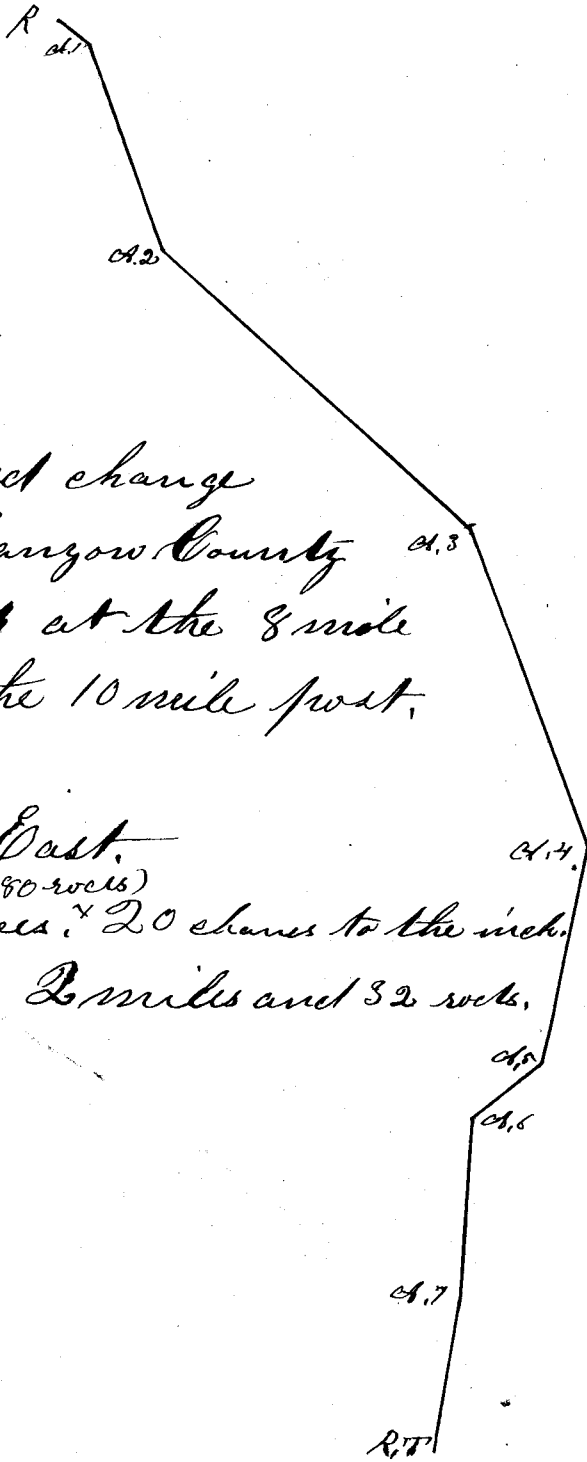 R
A.1
A.2
change
County A.3
at the 8 mile
the 10 mile post,
East. A.4
(80 rods)
20 chanes to the inch.
2 miles and 32 rods.
A.5
A.6
A.7
R,T